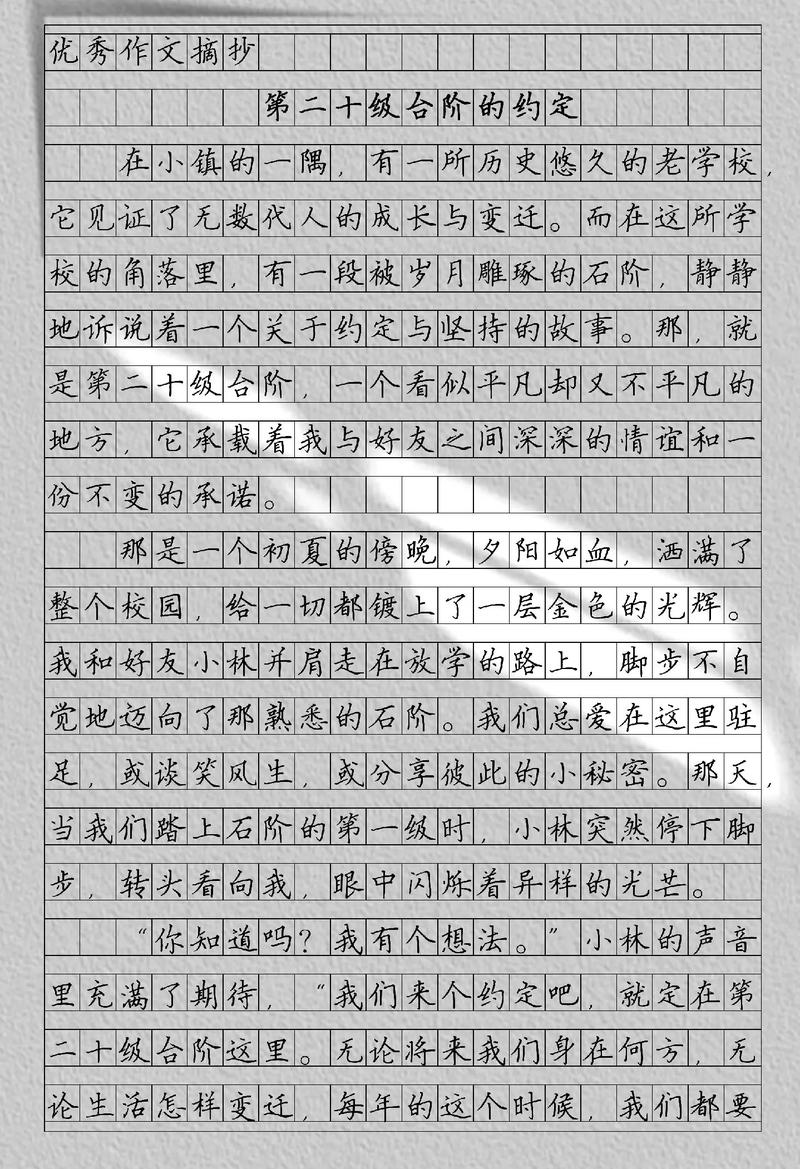 优秀作文摘抄
第二十级台阶的约定
在小镇的一隅，有一所历史悠久的老学校，
它见证了无数代人的成长与变迁。而在这所学
校的角落里，有一段被岁月雕琢的石阶，静静
地诉说着一个关于约定与坚持的故事。那，就
是第二十级台阶，一个看似平凡却又不平凡的
地方，它承载着我与好友之间深深的情谊和一
份不变的承诺。
那是一个初夏的傍晚，夕阳如血，洒满了
整个校园，给一切都镀上了一层金色的光辉。
我和好友小林并肩走在放学的路上，脚步不自
觉地迈向了那熟悉的石阶。我们总爱在这里驻
足，或谈笑风生，或分享彼此的小秘密。那天，
当我们踏上石阶的第一级时，小林突然停下脚
步，转头看向我，眼中闪烁着异样的光芒。
“你知道吗？我有个想法。”小林的声音
里充满了期待，“我们来个约定吧，就定在第
二十级台阶这里。无论将来我们身在何方，无
论生活怎样变迁，每年的这个时候，我们都要